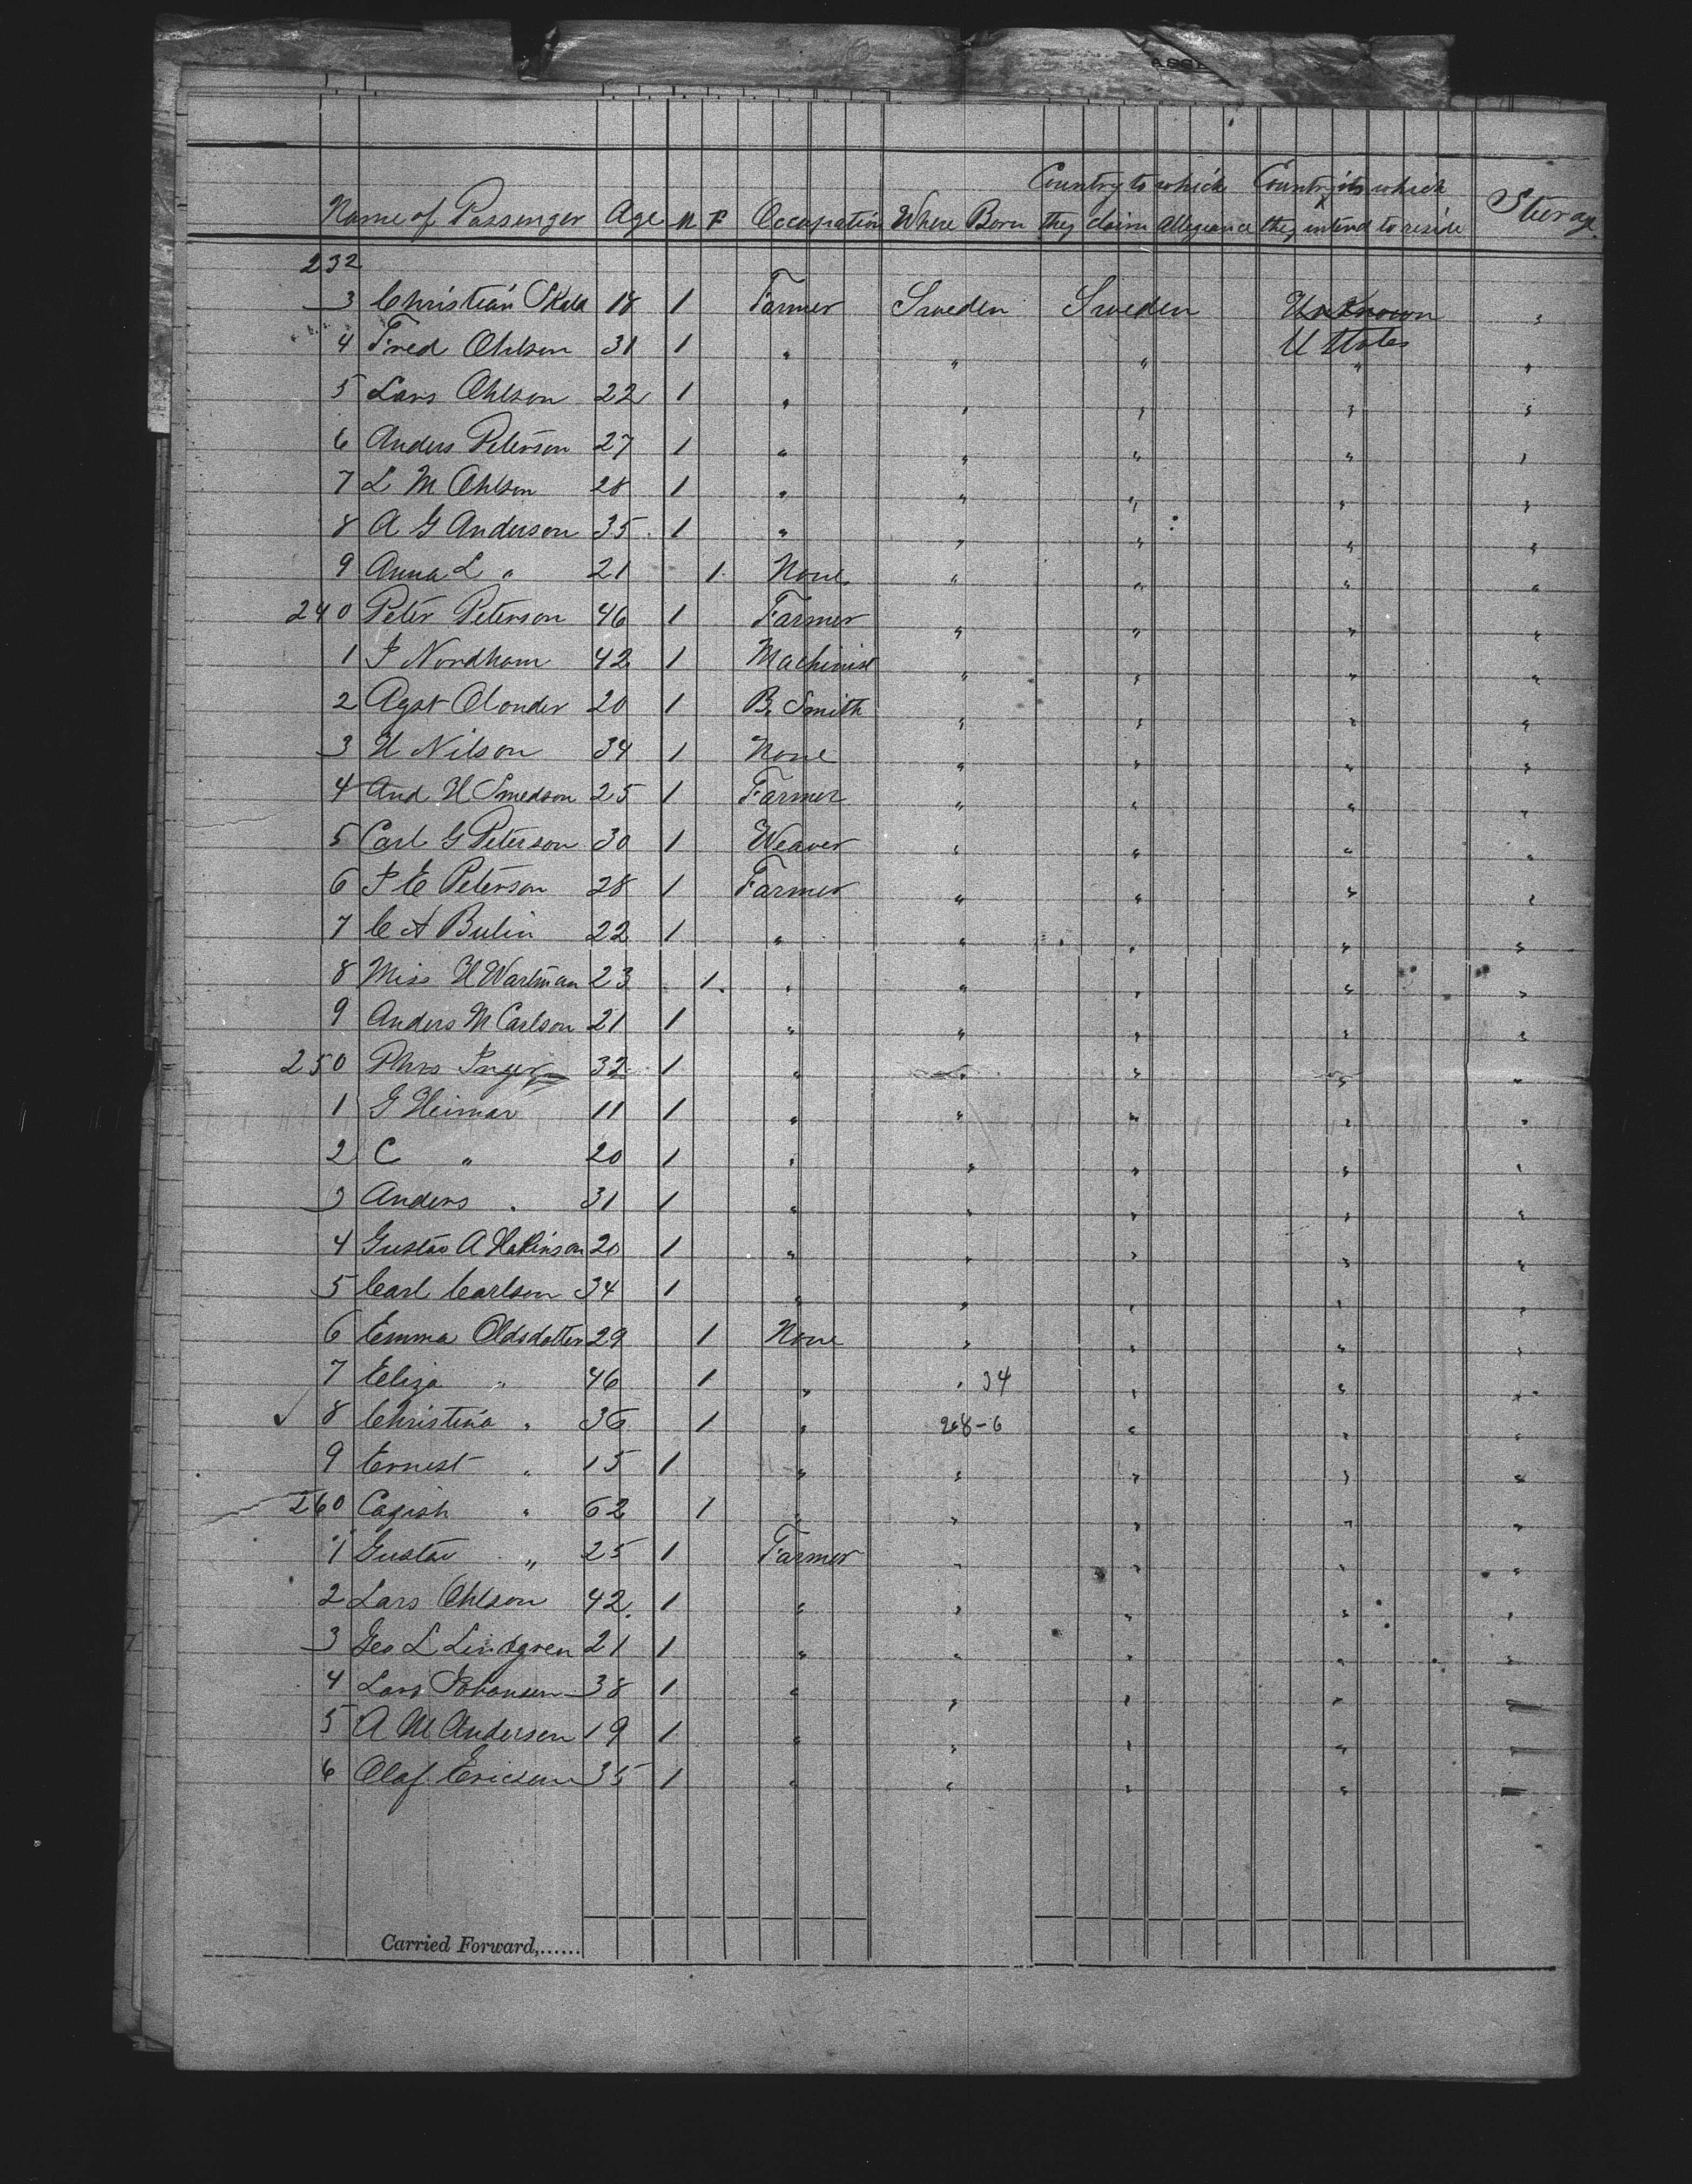 ASS
Country to which Country in which
Name of Passenger Age M F Occupation Where Born they claim Allegiance they intend to reside Steerage
232
3 Christian Skala 18 1 Farmer Sweden Sweden Unknown "
U States
4 Fred Ohlson 31 1 " " " " "
5 Lars Ohlson 22 1 " " " " "
6 Anders Peterson 27 1 " " " " "
7 L M Ohlson 28 1 " " " " "
8 A G Anderson 35 1 " " " " "
9 Anna L " 21 1 None " " " "
240 Peter Peterson 46 1 Farmer " " " "
1 J Nordham 42 1 Machinist " " " "
2 Agst Olonder 20 1 B. Smith " " " "
3 N Nilson 34 1 None " " " "
4 And H Smedson 25 1 Farmer " " " "
5 Carl G Peterson 30 1 Weaver " " " "
6 J E Peterson 28 1 Farmer " " " "
7 C A Bulin 22 1 " " " " "
8 Miss H Wartman 23 1 " " " " "
9 Anders M Carlson 21 1 " " " " "
250 Inger 32 1 " " " " "
1 G Heimar 11 1 " " " " "
2 C " 20 1 " " " " "
3 Anders " 31 1 " " " " "
4 Gustav A Hakinson 20 1 " " " " "
5 Carl Carlson 34 1 " " " " "
6 Emma Oldsdotter 29 1 None " " " "
7 Eliza " 46 1 " " 34 " " "
✓ 8 Christina " 36 1 " 268-6 " " "
9 Ernest " 15 1 " " " " "
260 Cagish " 62 1 " " " " "
1 Gustav " 25 1 Farmer " " " "
2 Lars Ohlson 42 1 " " " " "
3 Geo L Lindgren 21 1 " " " " "
4 Lars Johansen 38 1 " " " " "
5 A M Anderson 19 1 " " " " "
6 Olaf Ericson 35 1 " " " " "
Carried Forward,......